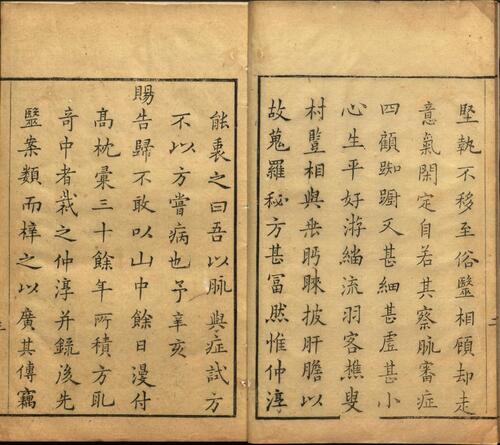 堅執不移至俗醫相顧却走
意氣閑定自若其察脉審症
四顧踟蹰又甚細甚虛甚小
心生平好游緇流羽客樵叟
村豎相與垂眄睞披肝膽以
故蒐羅秘方甚冨然惟仲淳
能衷之曰吾以脉與症試方
不以方嘗病也予辛亥
賜告歸不敢以山中餘日漫付
髙枕彙三十餘年所積方耴
竒中者裁之仲淳并錄後先
醫案類而梓之以廣其傳竊